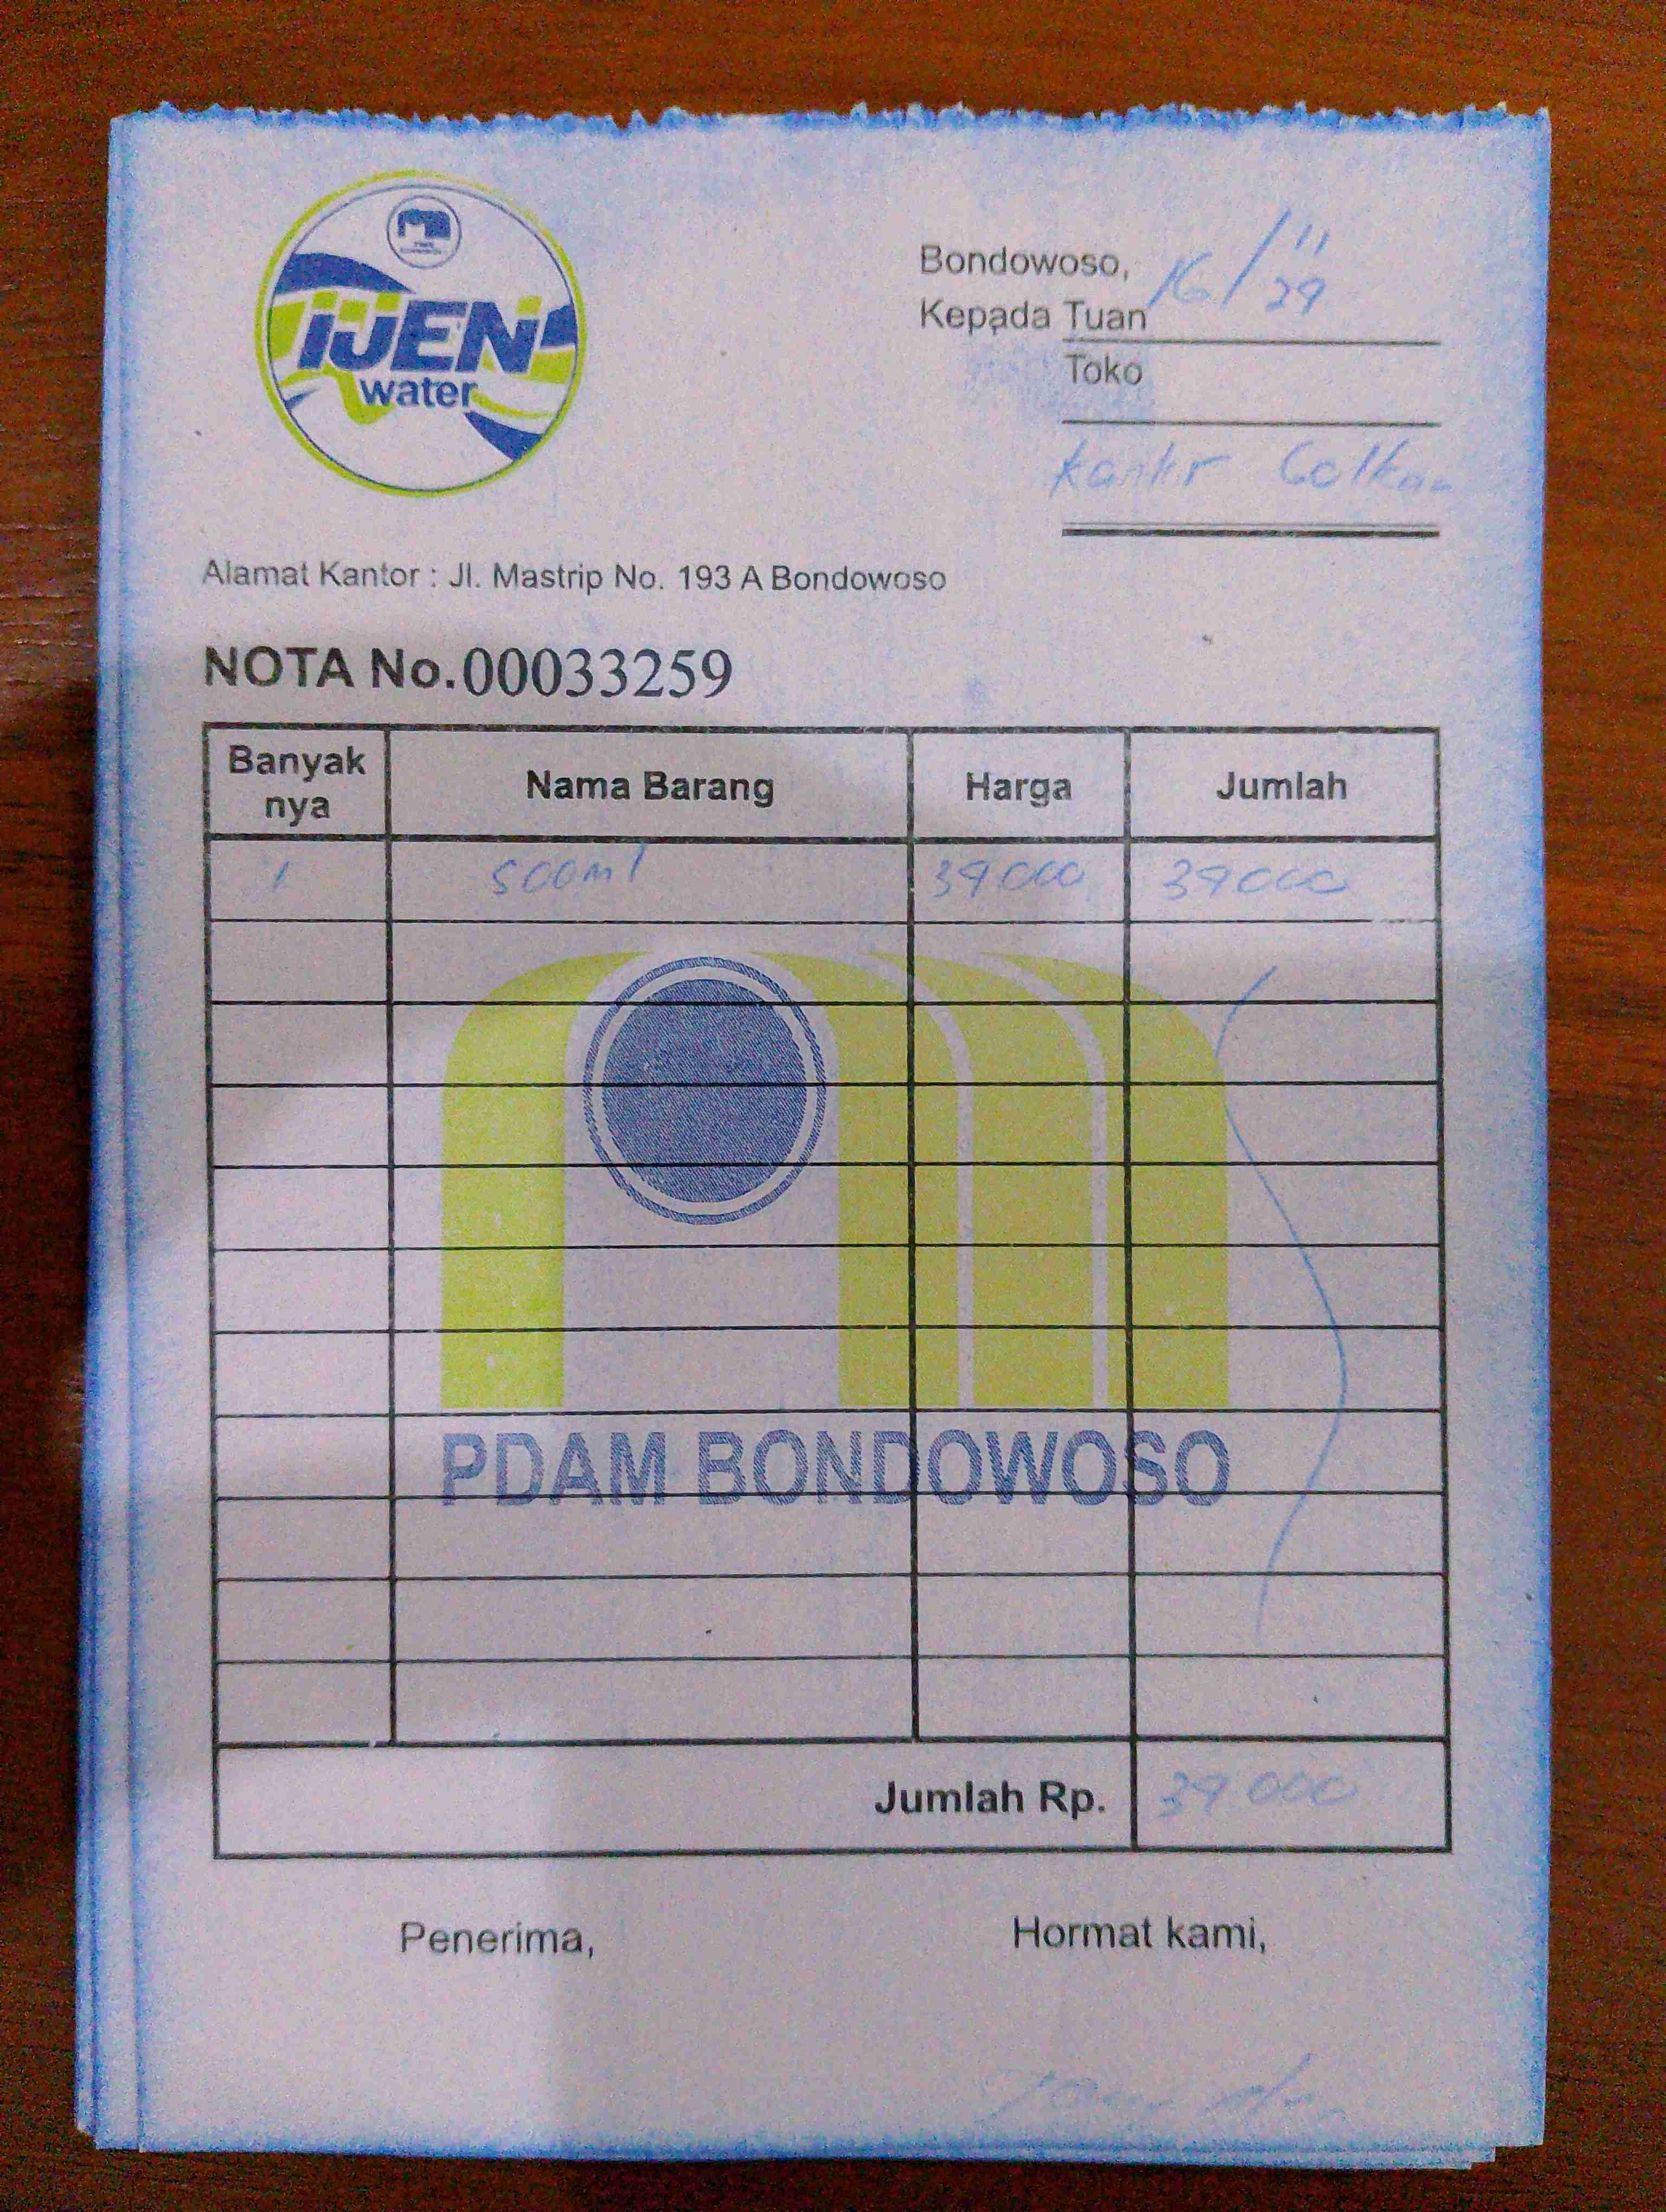 IJEN
water
Bondowoso, 16/11
29
Kepada Tuan
Toko
Kantor Golkar
Alamat Kantor : Jl. Mastrip No. 193 A Bondowoso
NOTA No.00033259
Banyak nya Nama Barang Harga Jumlah
1 500ml 39000 39000
PDAM BONDOWOSO
Jumlah Rp. 39000
Penerima, Hormat kami,